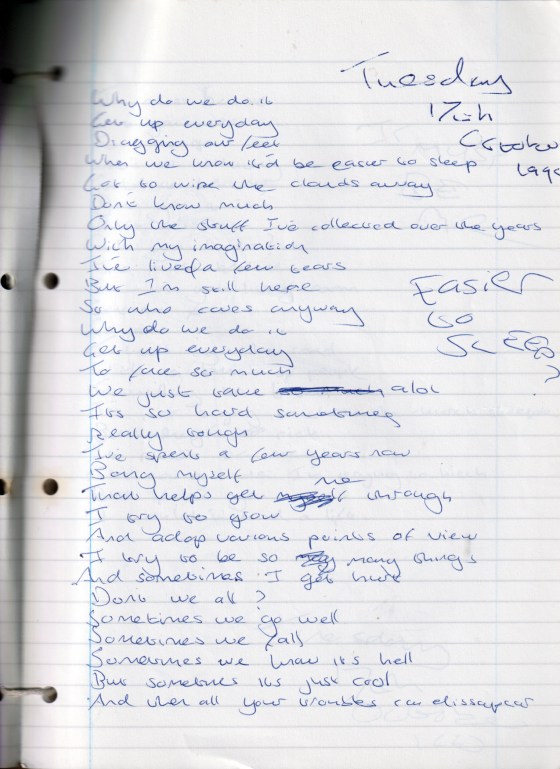 Tuesday
17th
October
Why do we do it
Get up everyday
Dragging our feet
When we know it'd be easier to sleep
Get to wipe the clouds away
Don't know much
Only the stuff I've collected over the years
With my imagination
I've lived a few tears
But I'm still here
So who cares anyway
Why do we do it
Get up everyday
To face so much
We just take alot
It's so hard sometimes
Really tough
I've spent a few years now
Being myself
That helps get me through
I try to grow
And adop various points of view
I try to be so many things
And sometimes I get hurt
Don't we all?
Sometimes we go well
Sometimes we fall
Sometimes we know it's hell
But sometimes it's just cool
And when all your troubles can dissapear
EASIER
to
SLEEP
?